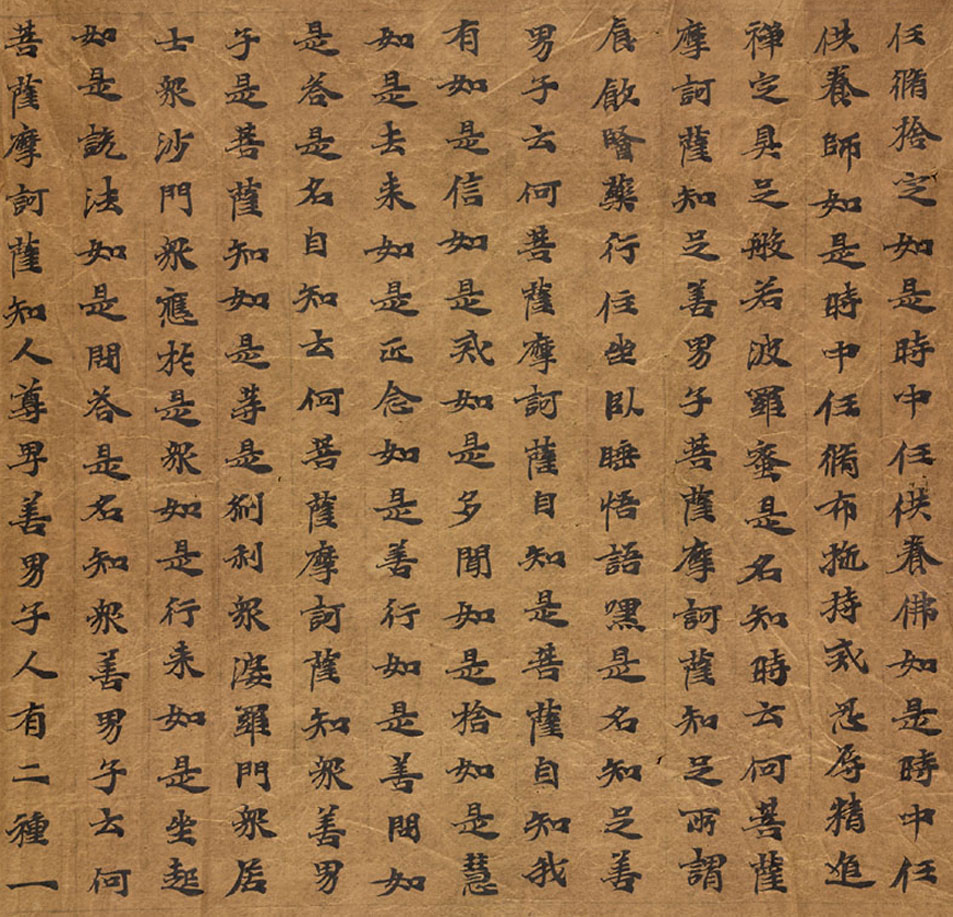 任脩捨定如是時中任供養佛如是時中任
供養師如是時中任脩布施持戒忍辱精進
禅定具足般若波羅蜜是名知時云何菩薩
摩訶薩知足善男子菩薩摩訶薩知足所謂
食飲醫藥行住坐卧睡悟語嘿是名知足善
男子云何菩薩摩訶薩自知是菩薩自知我
有如是信如是戒如是多聞如是捨如是慧
如是去来如是正念如是善行如是善問如
是荅是名自知云何菩薩摩訶薩知衆善男
子是菩薩知如是等是刹利衆婆羅門衆居
士衆沙門衆應於是衆如是行来如是坐起
如是說法如是問荅是名知衆善男子云何
菩薩摩訶薩知人尊卑善男子人有二種一